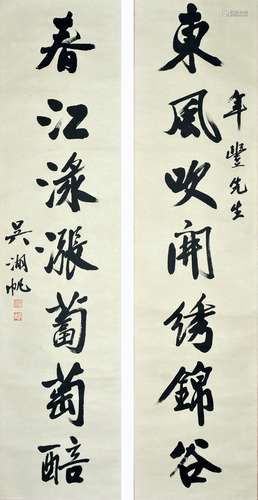 東風吹開綉錦谷
年豐先生
春江淥漲葡萄醅
吳湖帆